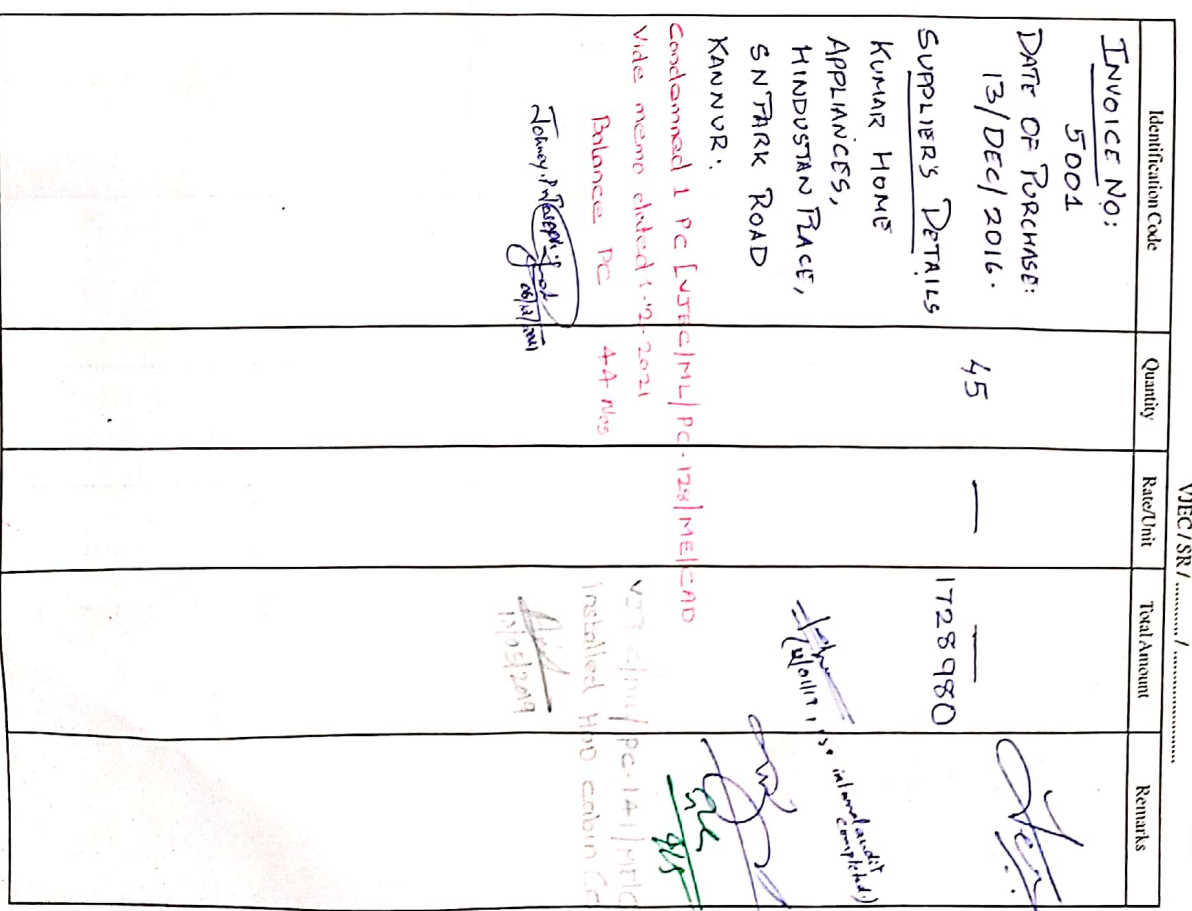 VJEC / SR / ............ / ........................
Identification Code Quantity Rate/Unit Total Amount Remarks
INVOICE NO:
5001
DATE OF PURCHASE:
13/DEC/2016.
45 — —
SUPPLIER'S DETAILS
1728980
KUMAR HOME
APPLIANCES,
HINDUSTAN PLACE,
SNPARK ROAD
KANNUR:
ISO internal audit
completed)
Condemned 1 PC [VJEC/ML/PC-128/ME/CAD
Vide memo dated 1-2-2021
Balance PC 44 Nos
PC-141/ME/C
installed HDD
10/05/2019